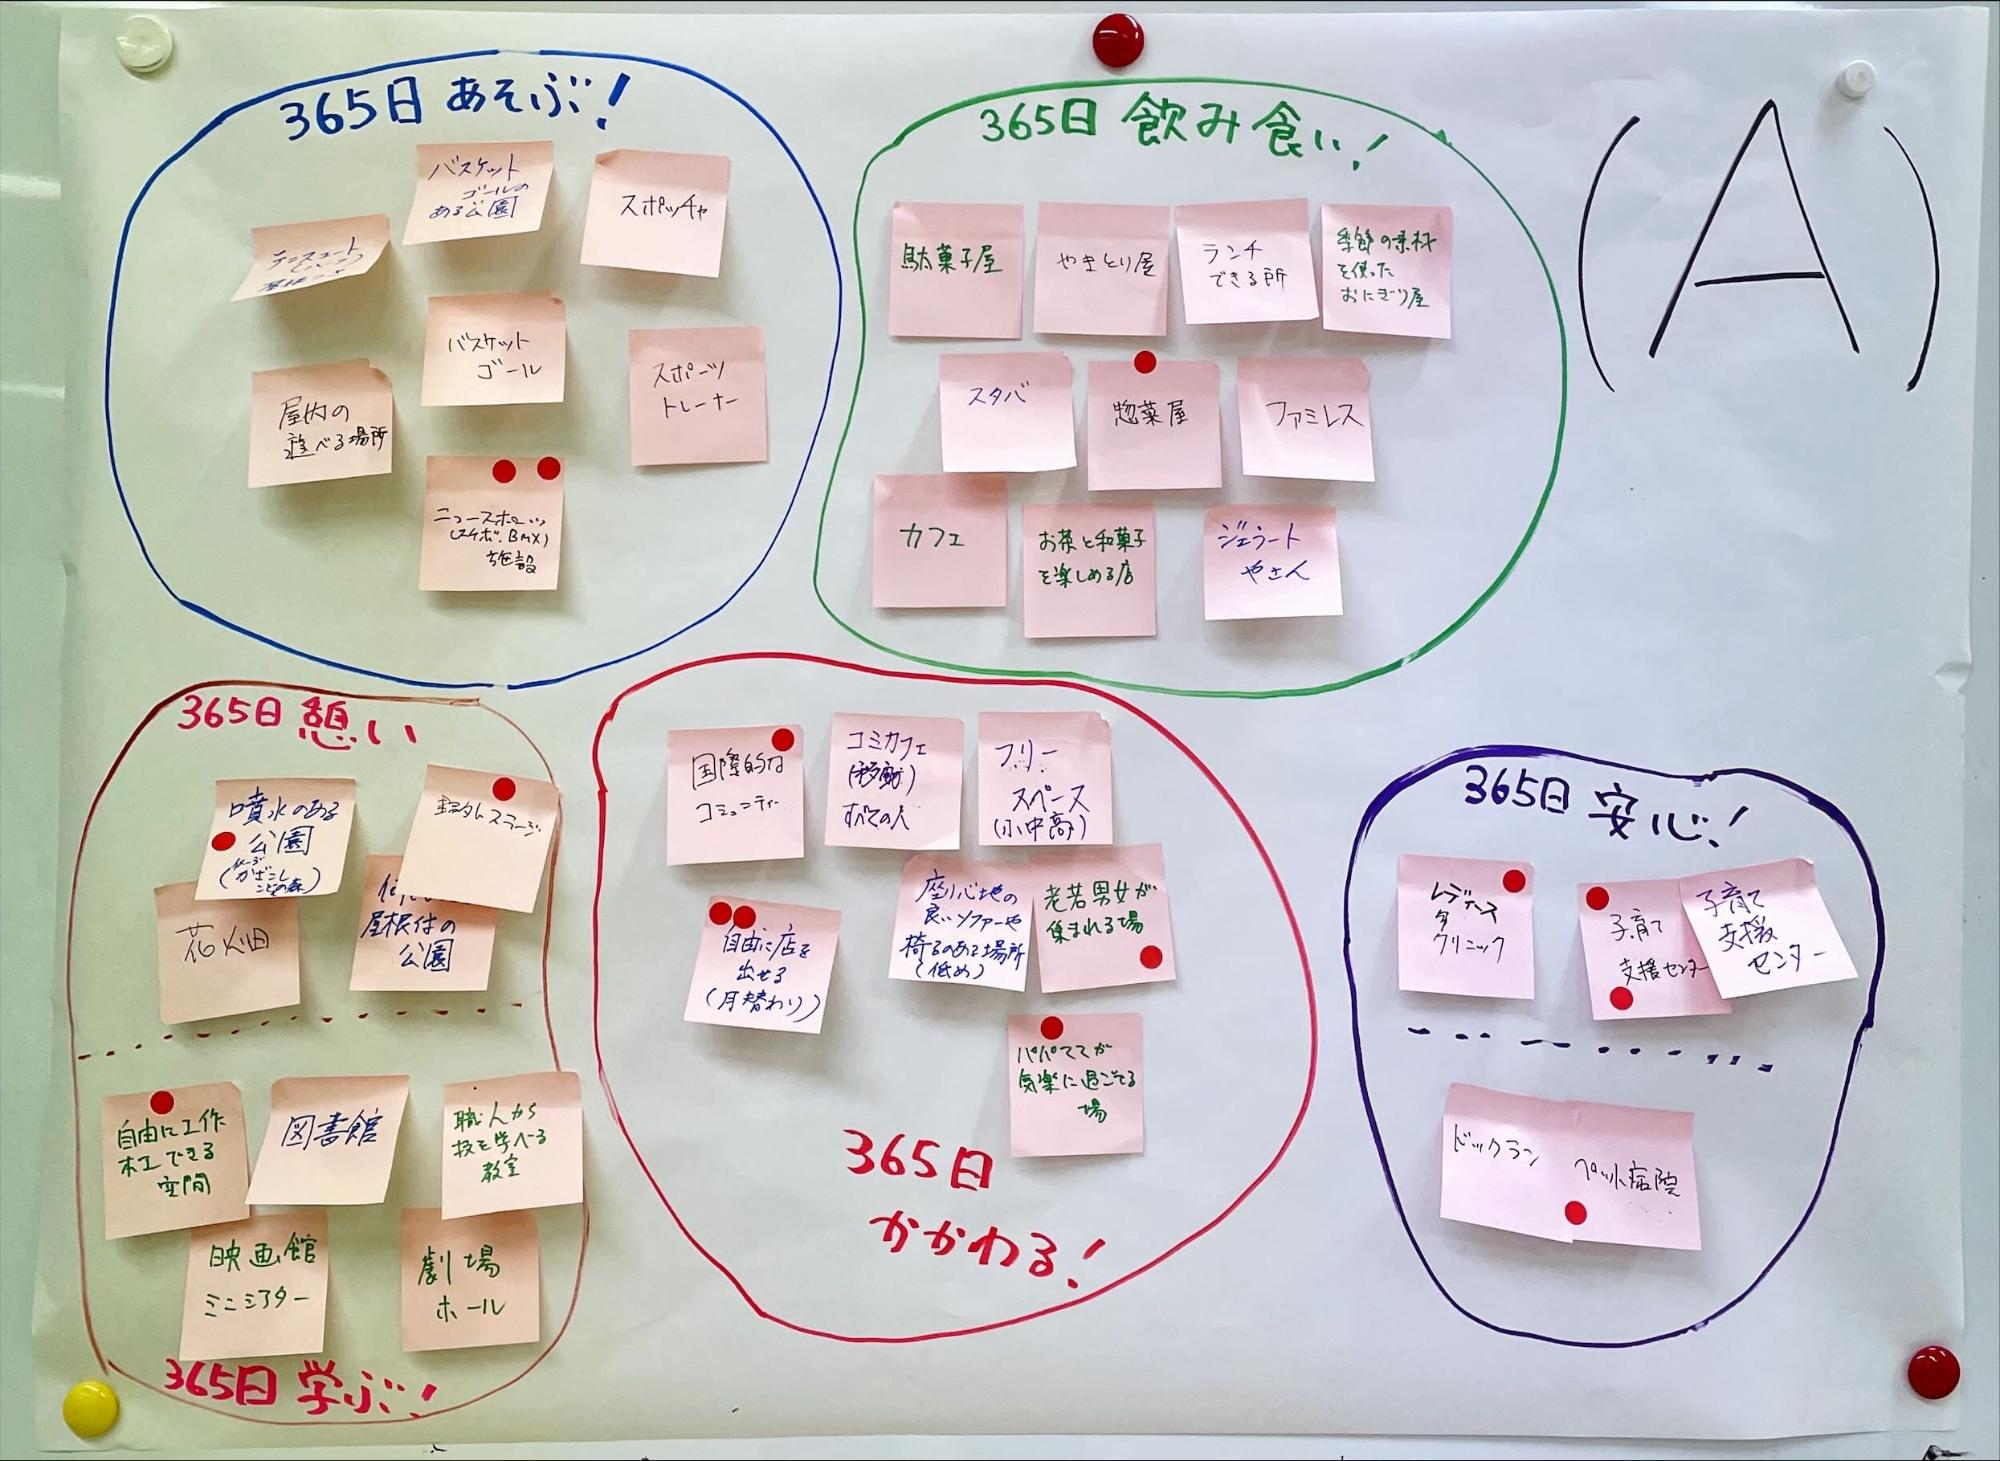 (A)
365日 あそぶ!
バスケット
ゴールの
ある公園
スポッチャ
バスケット
ゴール
スポーツ
トレーナー
屋内の
遊べる場所
ニュースポーツ
(スケボ.BMX)
施設
365日 飲み食い!
駄菓子屋
やきとり屋
ランチ
できる所
季節の素材
を使った
おにぎり屋
スタバ
惣菜屋
ファミレス
カフェ
お茶と和菓子
を楽しめる店
ジェラート
やさん
365日 憩い
噴水のある
公園
ステージ
花火田
屋根付の
公園
自由に工作
木工できる
空間
図書館
職人から
技を学べる
教室
映画館
ミニシアター
劇場
ホール
365日 学ぶ!
国際的な
コミュニティー
コミカフェ
(移動)
すべての人
フリー
スペース
(小中高)
自由に店を
出せる
(月替わり)
座り心地の
良いソファーや
椅子のある場所
(低め)
老若男女が
集まれる場
パパママが
気楽に過ごせる
場
365日
かかわる!
365日 安心!
レディース
クリニック
子育て
支援センター
子育て
支援
センター
ドックラン
ペット病院